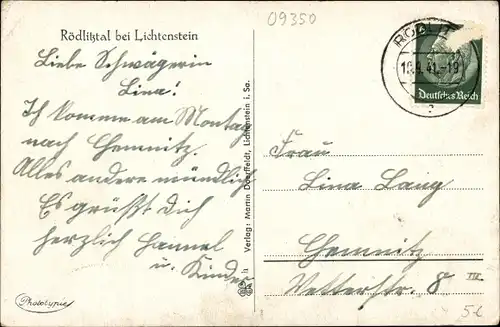 09350
Rödlitztal bei Lichtenstein
Liebe Schwägerin
Lina!
Ich komme am Montag
nach Chemnitz.
Alles andere mündlich
Es grüßt Dich
herzlich Hannel
u. Kinder
Phototypie
Verlag: Martin Doerffeldt, Lichtenstein i. Sa.
RÖDLITZ
41.-19
Deutsches Reich
Frau
Lina Lang
Chemnitz
Wetterstr. 8 III
5.-